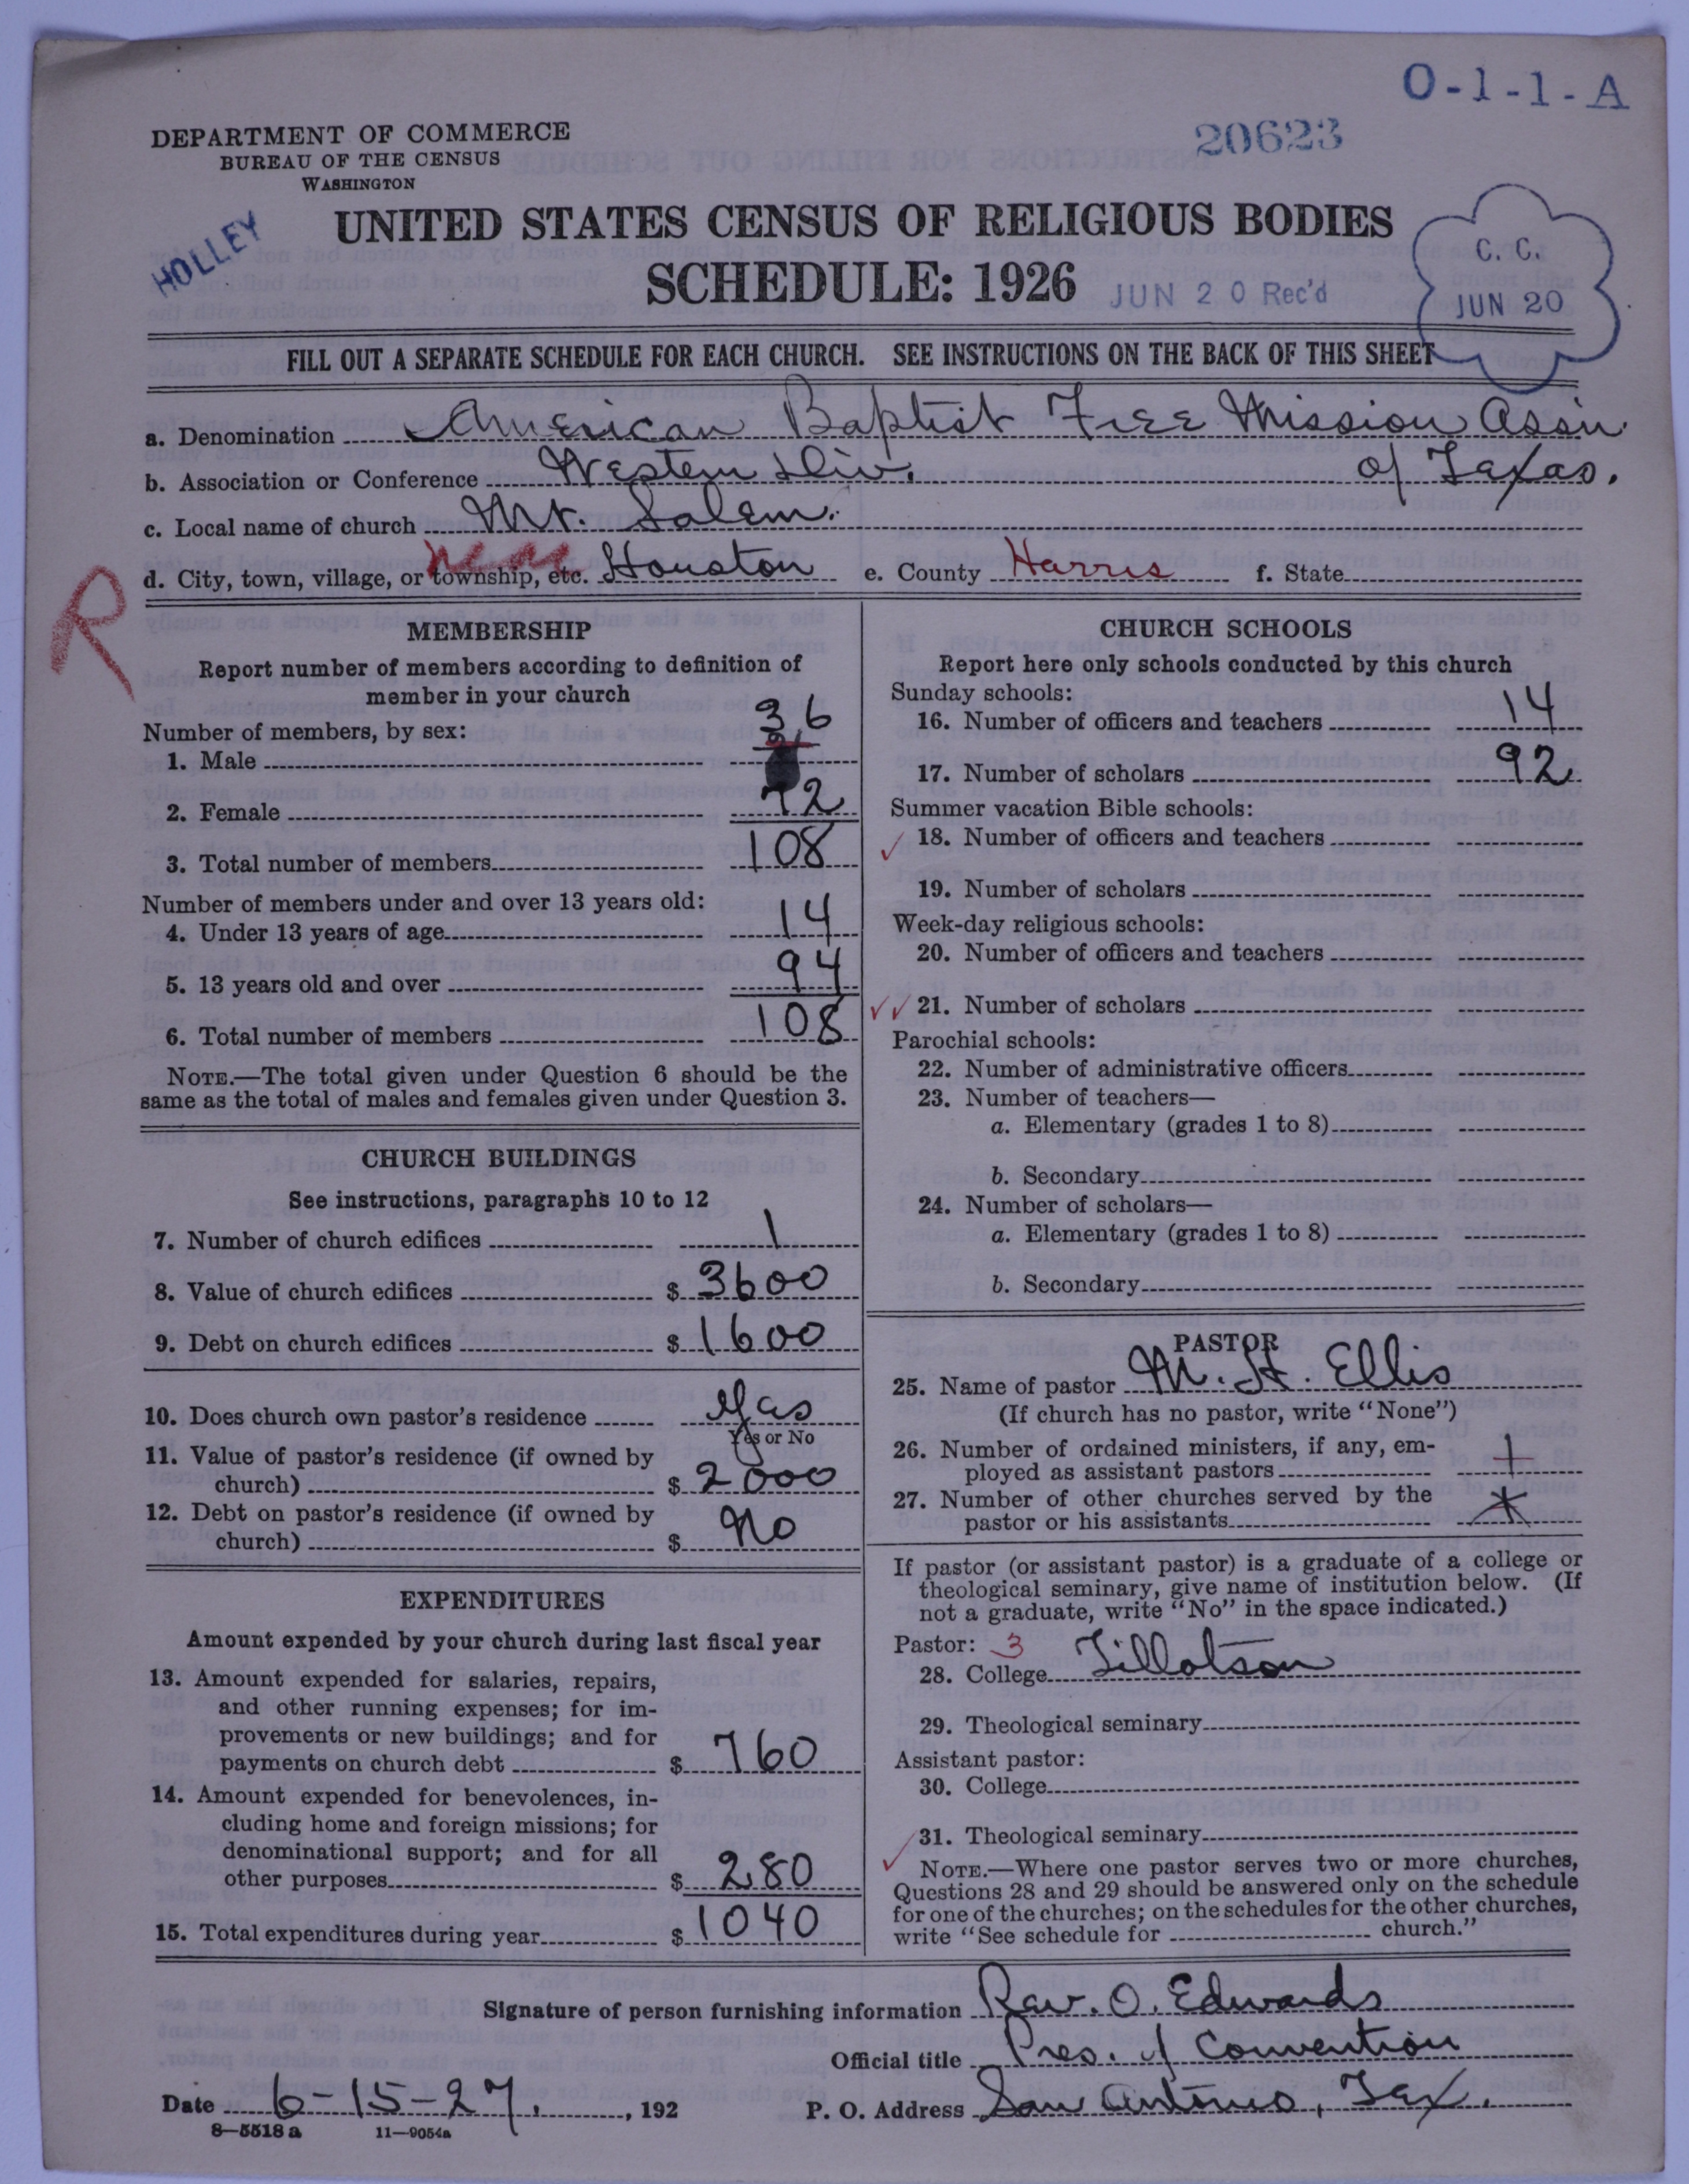 O-1-1-A
DEPARTMENT OF COMMERCE
BUREAU OF THE CENSUS
WASHINGTON
20623
HOLLEY
UNITED STATES CENSUS OF RELIGIOUS BODIES
SCHEDULE: 1926
JUN 20 Rec'd
C. C.
JUN 20
FILL OUT A SEPARATE SCHEDULE FOR EACH CHURCH. SEE INSTRUCTIONS ON THE BACK OF THIS SHEET
a. Denomination American Baptist Free Mission Assn.
b. Association or Conference Western Div. of Texas.
c. Local name of church Mt. Salem.
d. City, town, village, or township, etc. Houston e. County Harris f. State
R
MEMBERSHIP
Report number of members according to definition of
member in your church
Number of members, by sex:
1. Male 36
2. Female 72
3. Total number of members 108
Number of members under and over 13 years old:
4. Under 13 years of age 14
5. 13 years old and over 94
6. Total number of members 108
NOTE.—The total given under Question 6 should be the
same as the total of males and females given under Question 3.
CHURCH BUILDINGS
See instructions, paragraphs 10 to 12
7. Number of church edifices 1
8. Value of church edifices $ 3600
9. Debt on church edifices $ 1600
10. Does church own pastor's residence Yas
Yes or No
11. Value of pastor's residence (if owned by
church) $ 2000
12. Debt on pastor's residence (if owned by
church) $ No
EXPENDITURES
Amount expended by your church during last fiscal year
13. Amount expended for salaries, repairs,
and other running expenses; for im-
provements or new buildings; and for
payments on church debt $ 760
14. Amount expended for benevolences, in-
cluding home and foreign missions; for
denominational support; and for all
other purposes $ 280
15. Total expenditures during year $ 1040
CHURCH SCHOOLS
Report here only schools conducted by this church
Sunday schools:
16. Number of officers and teachers 14
17. Number of scholars 92
Summer vacation Bible schools:
18. Number of officers and teachers
19. Number of scholars
Week-day religious schools:
20. Number of officers and teachers
21. Number of scholars
Parochial schools:
22. Number of administrative officers
23. Number of teachers—
a. Elementary (grades 1 to 8)
b. Secondary
24. Number of scholars—
a. Elementary (grades 1 to 8)
b. Secondary
PASTOR
25. Name of pastor M. H. Ellis
(If church has no pastor, write "None")
26. Number of ordained ministers, if any, em-
ployed as assistant pastors
27. Number of other churches served by the
pastor or his assistants
If pastor (or assistant pastor) is a graduate of a college or
theological seminary, give name of institution below. (If
not a graduate, write "No" in the space indicated.)
Pastor: 3
28. College Tillotson
29. Theological seminary
Assistant pastor:
30. College
31. Theological seminary
NOTE.—Where one pastor serves two or more churches,
Questions 28 and 29 should be answered only on the schedule
for one of the churches; on the schedules for the other churches,
write "See schedule for church."
Signature of person furnishing information Rev. O. Edwards
Official title Pres. of Convention
Date 6-15-27, 192 P. O. Address San Antonio, Tex.
8—5518 a 11—9054a